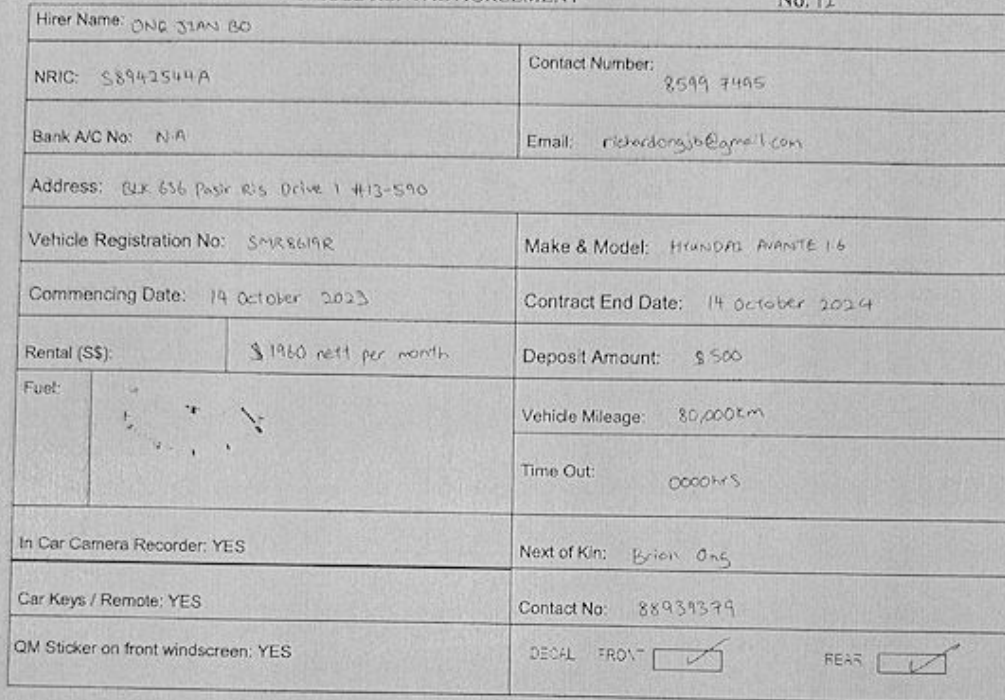 No. 12
Hirer Name: ONG JIAN BO
NRIC: S8942544A
Contact Number:
8599 7495
Bank A/C No: N.A
Email: richardongjb@gmail.com
Address: BLK 636 Pasir Ris Drive 1 #13-590
Vehicle Registration No: SMR8619R
Make & Model: HYUNDAI AVANTE 1.6
Commencing Date: 14 October 2023
Contract End Date: 14 October 2024
Rental (S$): $1960 nett per month
Deposit Amount: $500
Fuel:
Vehicle Mileage: 80,000km
Time Out: 0000hrs
In Car Camera Recorder: YES
Next of Kin: Brian Ong
Car Keys / Remote: YES
Contact No: 88939379
QM Sticker on front windscreen: YES
DECAL FRONT REAR